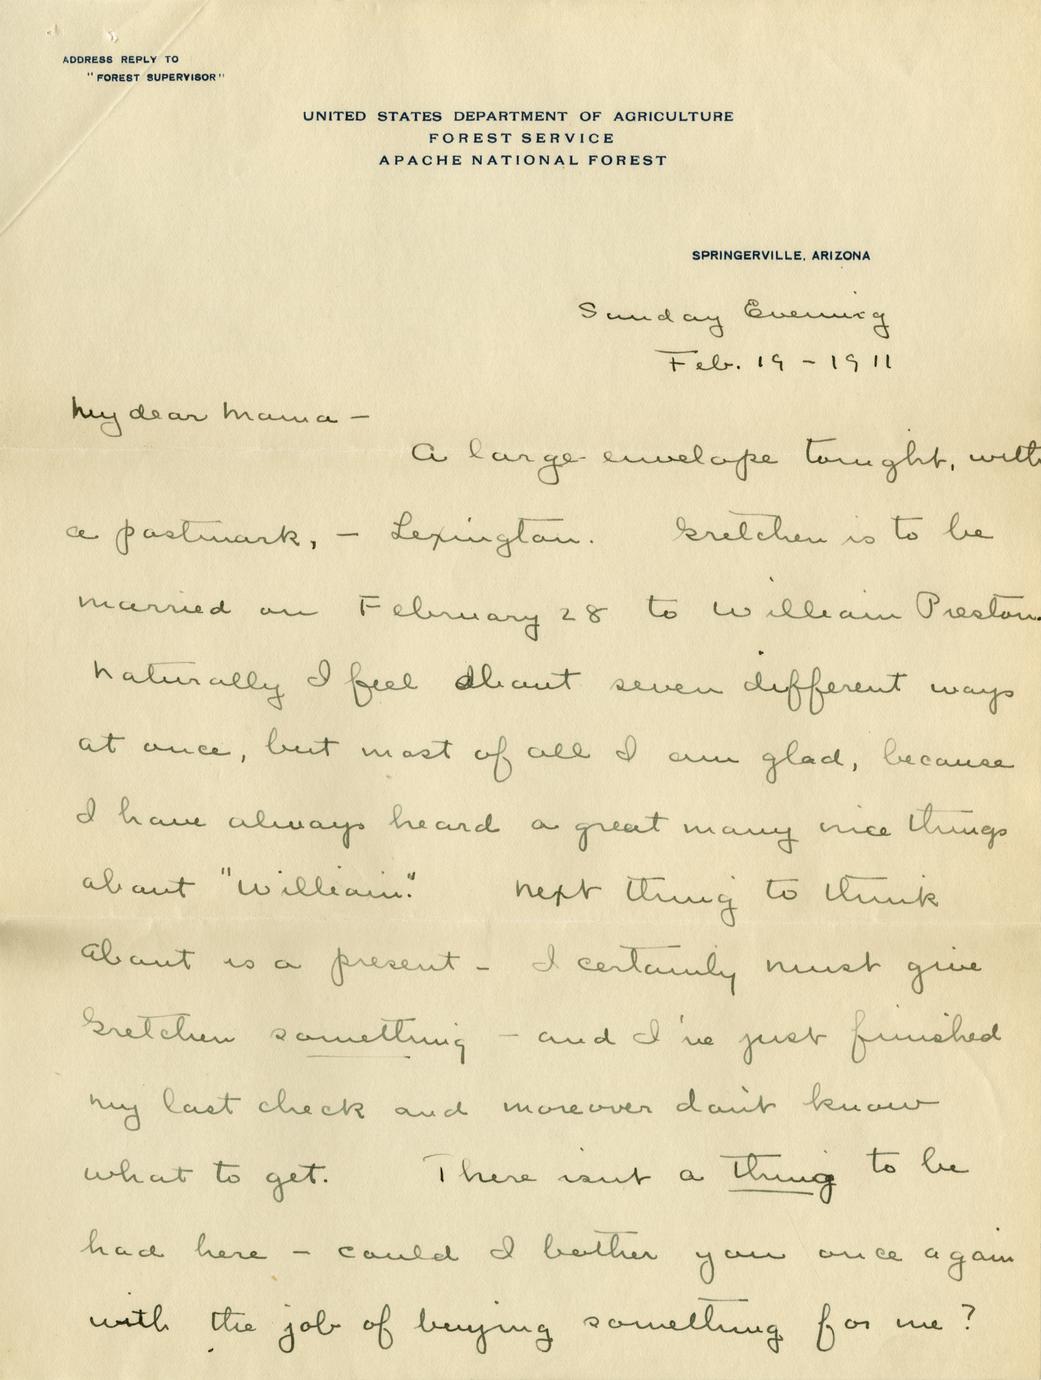 ADDRESS REPLY TO
"FOREST SUPERVISOR"
UNITED STATES DEPARTMENT OF AGRICULTURE
FOREST SERVICE
APACHE NATIONAL FOREST
SPRINGERVILLE, ARIZONA
Sunday Evening
Feb. 19 - 1911
My dear Mama -
A large envelope tonight, with
a postmark, - Lexington. Gretchen is to be
married on February 28 to William Preston.
Naturally I feel about seven different ways
at once, but most of all I am glad, because
I have always heard a great many nice things
about "William." Next thing to think
about is a present - I certainly must give
Gretchen something - and I've just finished
my last check and moreover don't know
what to get. There isn't a thing to be
had here - could I bother you once again
with the job of buying something for me?